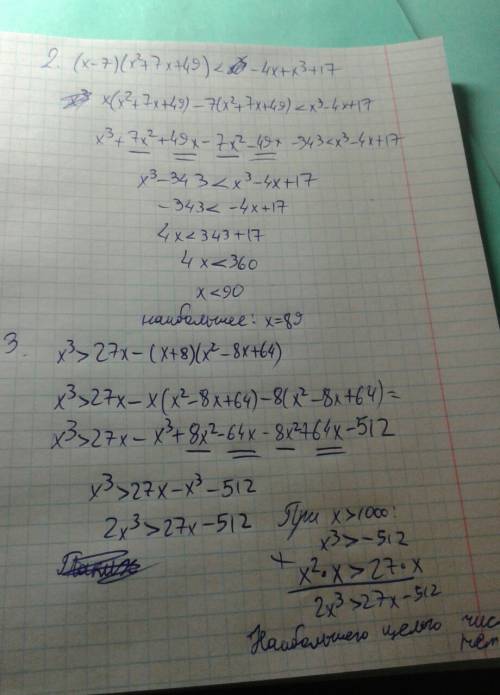 2. (x-7)(x²+7x+49) < -4x+x³+17
x(x²+7x+49)-7(x²+7x+49)<x³-4x+17
x³+7x²+49x-7x²-49x-343<x³-4x+17
x³-343<x³-4x+17
-343<-4x+17
4x<343+17
4x<360
x<90
наибольшее: x=89
3. x³>27x-(x+8)(x²-8x+64)
x³>27x-x(x²-8x+64)-8(x²-8x+64)=
x³>27x-x³+8x²-64x-8x²+64x-512
x³>27x-x³-512
2x³>27x-512
При x>1000:
x³>-512
+ x²·x>27·x
2x³>27x-512
Наибольшего целого чис
нет